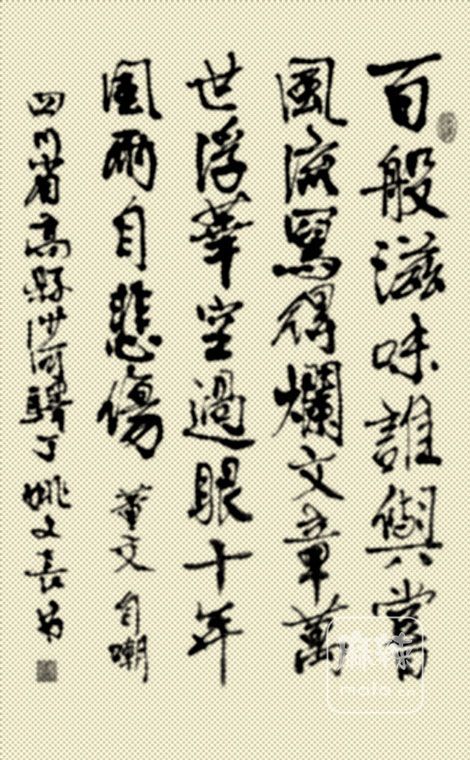 百般滋味誰與嘗
風流寫得爛文章萬
世浮華空過眼十年
風雨自悲傷 董文 自嘲
四川省高縣沙河 姚文長書
麻辣
mala